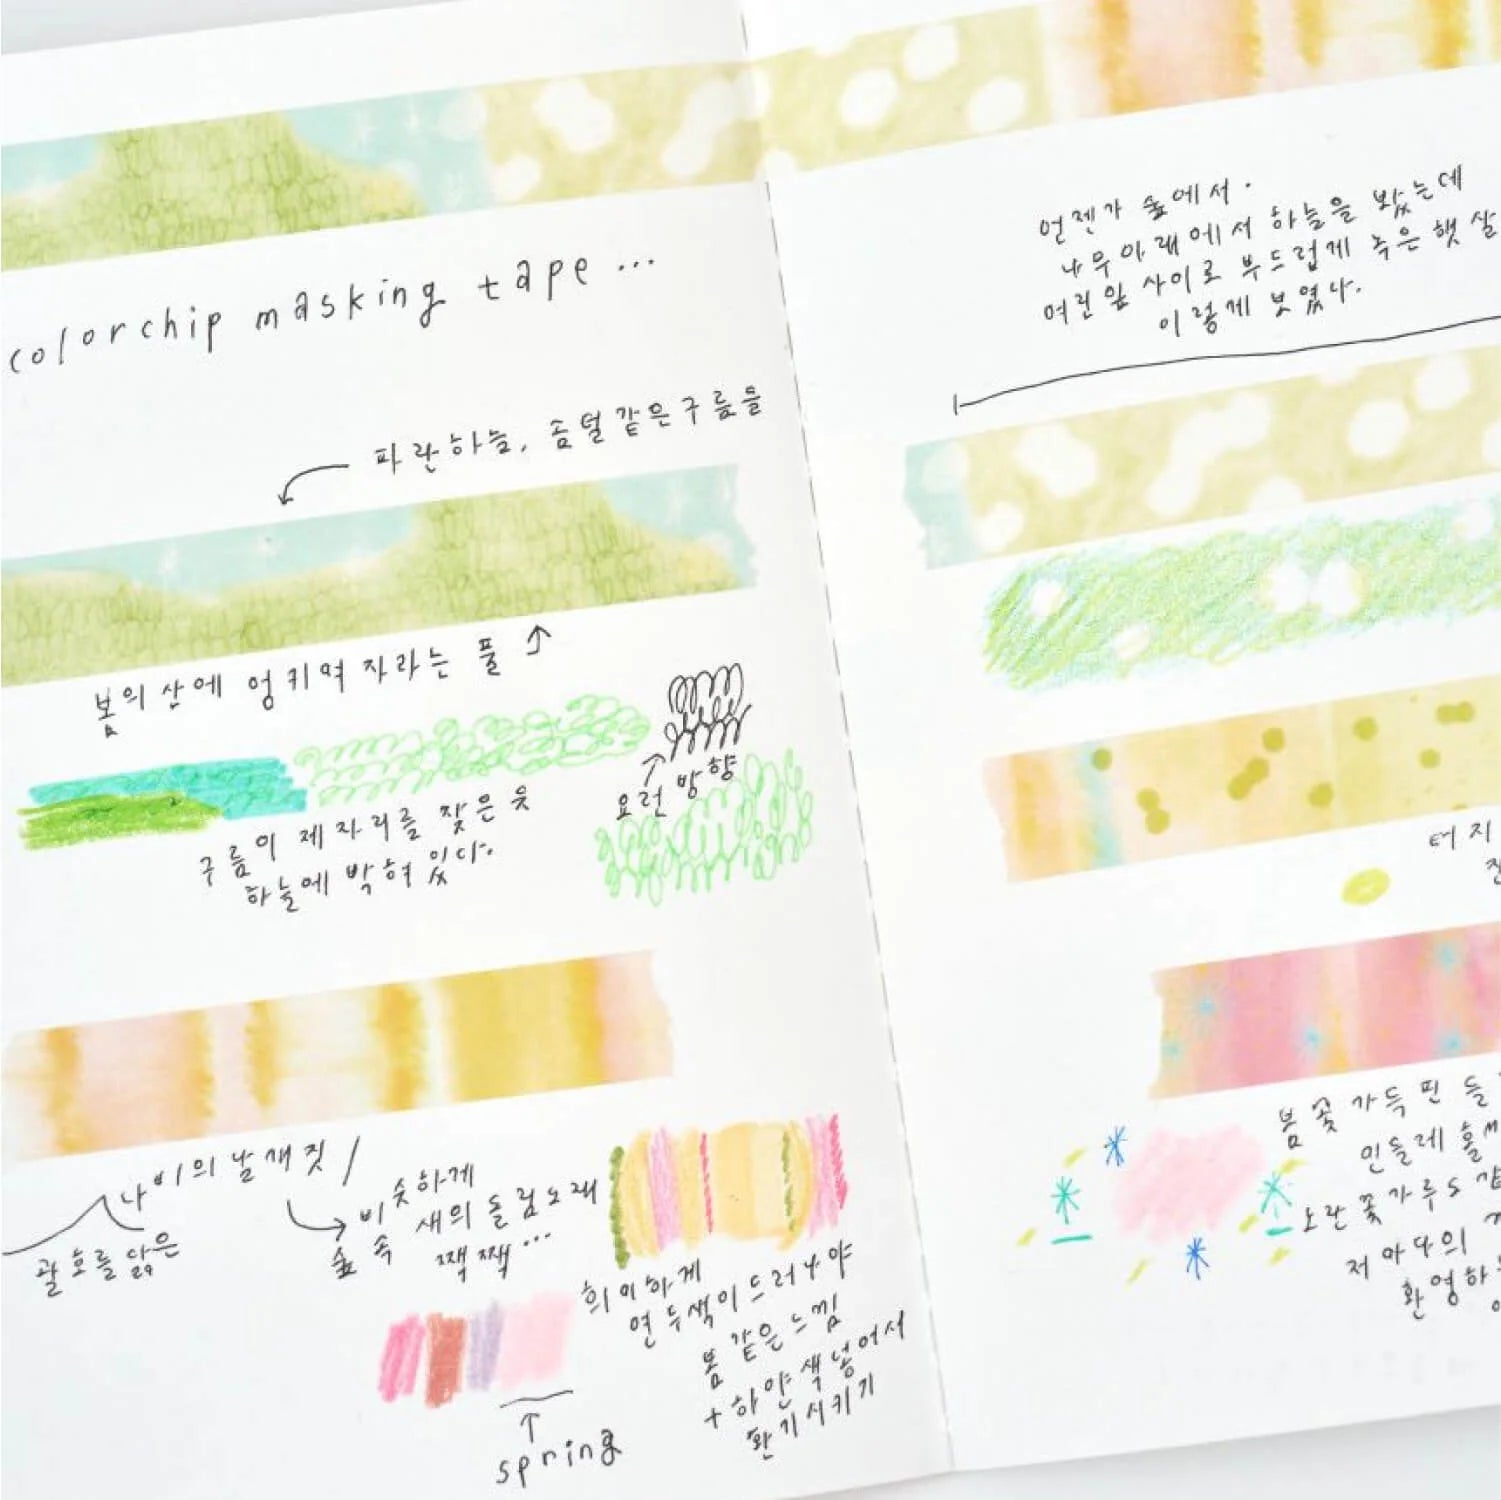 colorchip masking tape ...
파란하늘, 솜털같은구름을
봄의 산에 엉키며 자라는 풀
요런 방향
구름이 제자리를 찾은 듯
하늘에 박혀 있다.
나비의 날개짓 /
괄호를 닮은
비슷하게
새의 돌림노래
숲 속 짹짹...
spring
희미하게
연두색이 드러나야
봄 같은 느낌
+ 하얀색 넣어서
환기시키기
언젠가 숲에서.
나무아래에서 하늘을 봤는데
여린잎 사이로 부드럽게 녹은 햇살
이렇게 보였다.
터지
봄꽃 가득 핀 들
민들레 홀씨
노란 꽃가루
저마다의
환영하